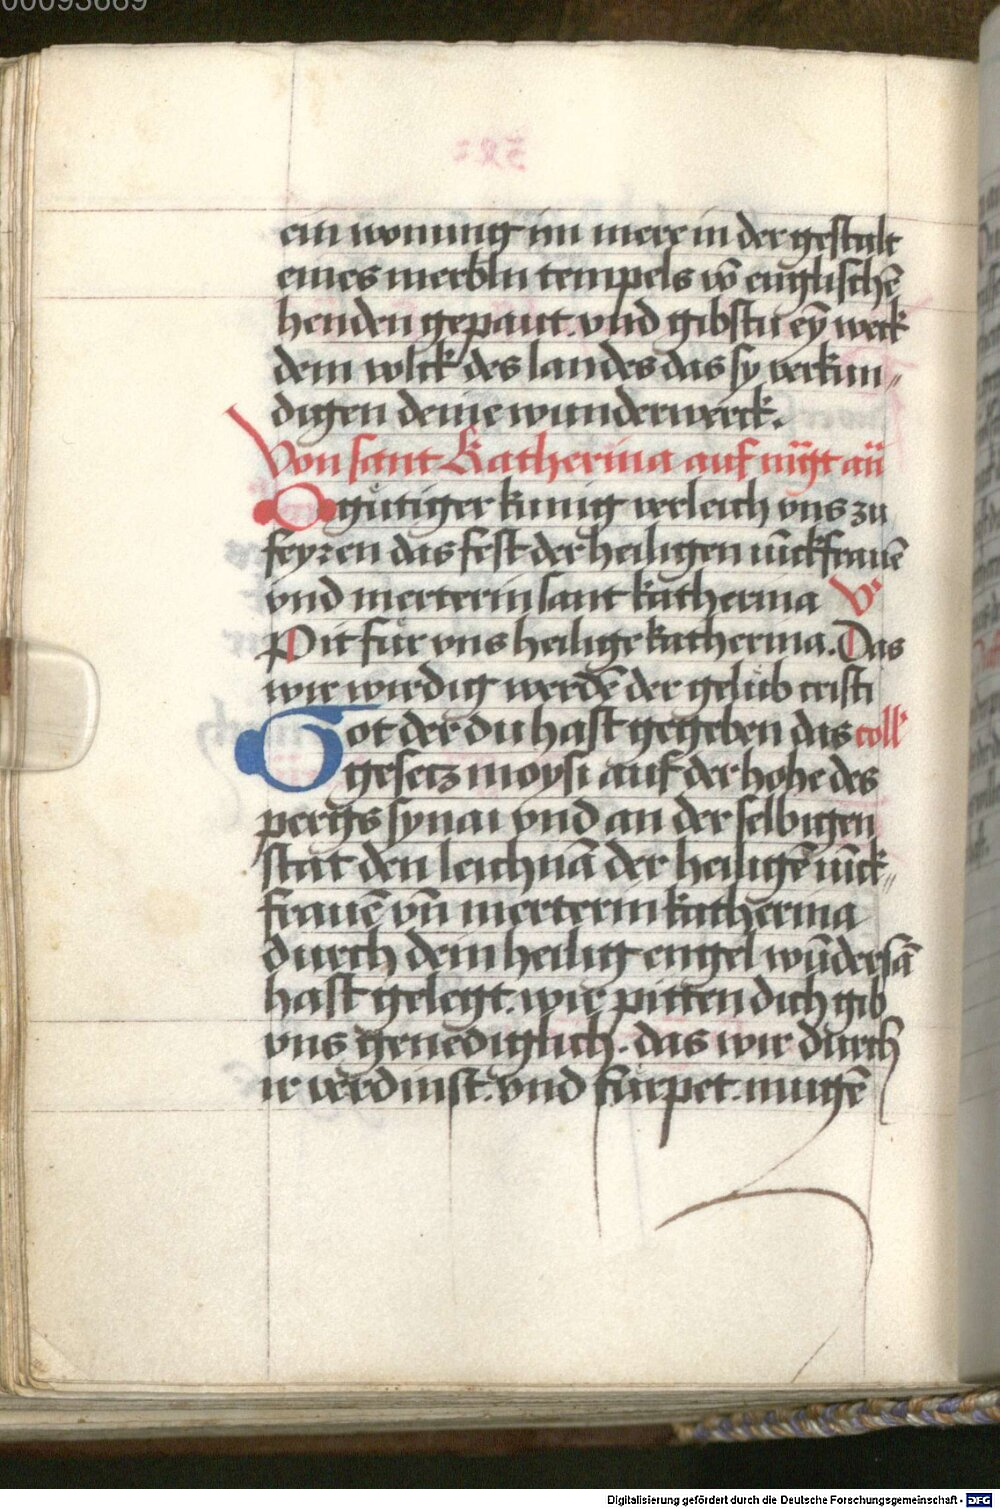 00093669
ein wonung im mere in der gestalt
eines merbln tempels vō englischē
henden gepaut. vnd gibstu eȳ werk
dem volck des landes das sy verkun„
digen deine wunderwerck.
Von sant Katherina auf
O gütiger kunig verleich vns zu
feyren das fest der heiligen iūckfrauē
vnd merterin sant katherina V
Pit für vns heilige katherina. Das
wir wirdig werdē der gelüb cristi
Got der du hast gegeben das coll
gesetz moysi auf der hohe des
pergs synai vnd an der selbigen
stat den leichnā der heiligē iūck„
frauē vn̄ merterin katherina
durch dein heilig engel wūdersā
hast gelegt. wir pitten dich gib
vns genediglich. das wir durch
ir verdinst. vnd fürpet. mugē
Digitalisierung gefördert durch die Deutsche Forschungsgemeinschaft - DFG